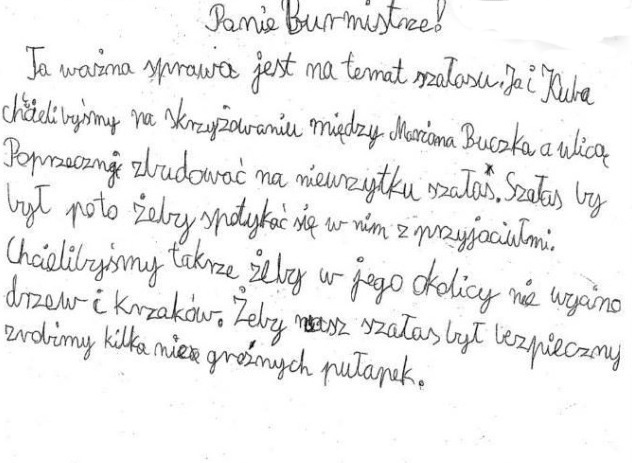 Panie Burmistrze!
Ta ważna sprawa jest na temat szałasu. Ja i Kuba
chcielibyśmy na skrzyżowaniu między Mariana Buczka a ulicą
Poprzeczną zbudować na nieurzytku szałas. Szałas by
był poto żeby spotykać się w nim z przyjaciułmi.
Chcielibyśmy takrze żeby w jego okolicy nie wycino
drzew i krzaków. Żeby nasz szałas był bezpieczny
zrobimy kilka nie groźnych pułapek.